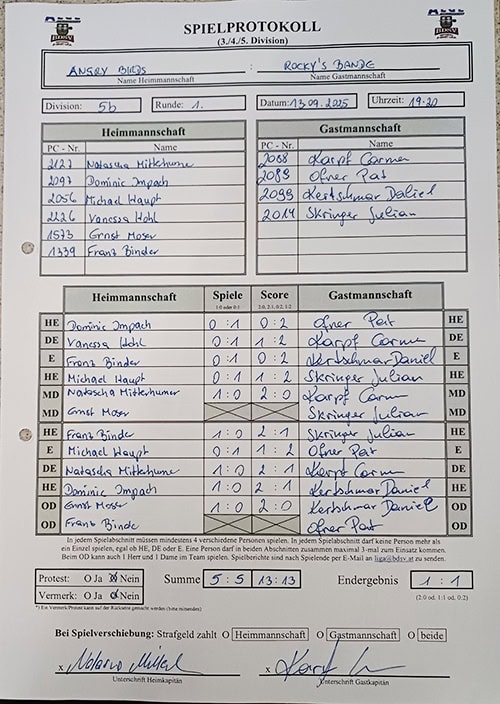 SPIELPROTOKOLL
(3./4./5. Division)
ANGRY BIRDS : ROCKY'S BANDE
Name Heimmannschaft Name Gastmannschaft
Division: 5b Runde: 1. Datum: 13.09.2025 Uhrzeit: 19:20
Heimmannschaft Gastmannschaft
PC - Nr. Name PC - Nr. Name
2127 Natascha Mitterhumer 2088 Karpf Carmen
2097 Dominic Impach 2089 Ofner Pat
2056 Michael Haupt 2099 Kertschmar Daniel
2226 Vanessa Hohl 2014 Skringer Julian
1573 Ernst Moser
1339 Franz Binder
Heimmannschaft Spiele Score Gastmannschaft
1:0 oder 0:1 2:0, 2:1, 0:2, 1:2
HE Dominic Impach 0:1 0:2 Ofner Pat HE
DE Vanessa Hohl 0:1 1:2 Karpf Carmen DE
E Franz Binder 0:1 0:2 Kertschmar Daniel E
HE Michael Haupt 0:1 1:2 Skringer Julian HE
MD Natascha Mitterhumer 1:0 2:0 Karpf Carmen MD
MD Ernst Moser Skringer Julian MD
HE Franz Binder 1:0 2:1 Skringer Julian HE
E Michael Haupt 0:1 1:2 Ofner Pat E
DE Natascha Mitterhumer 1:0 2:1 Karpf Carmen DE
HE Dominic Impach 1:0 2:1 Kertschmar Daniel HE
OD Ernst Moser 1:0 2:0 Kertschmar Daniel OD
OD Franz Binder Ofner Pat OD
In jedem Spielabschnitt müssen mindestens 4 verschiedene Personen spielen. In jedem Spielabschnitt darf keine Person mehr als
ein Einzel spielen, egal ob HE, DE oder E. Eine Person darf in beiden Abschnitten zusammen maximal 3-mal zum Einsatz kommen.
Beim OD kann auch 1 Herr und 1 Dame im Team spielen. Spielberichte sind nach Spielende per E-Mail an liga@bdsv.at zu senden.
Protest: O Ja Nein Summe 5:5 13:13 Endergebnis 1:1
Vermerk: O Ja Nein (2:0 od. 1:1 od. 0:2)
*) Ein Vermerk/Protest kann auf der Rückseite gemacht werden
Bei Spielverschiebung: Strafgeld zahlt O Heimmannschaft O Gastmannschaft O beide
x x
Unterschrift Heimkapitän Unterschrift Gastkapitän